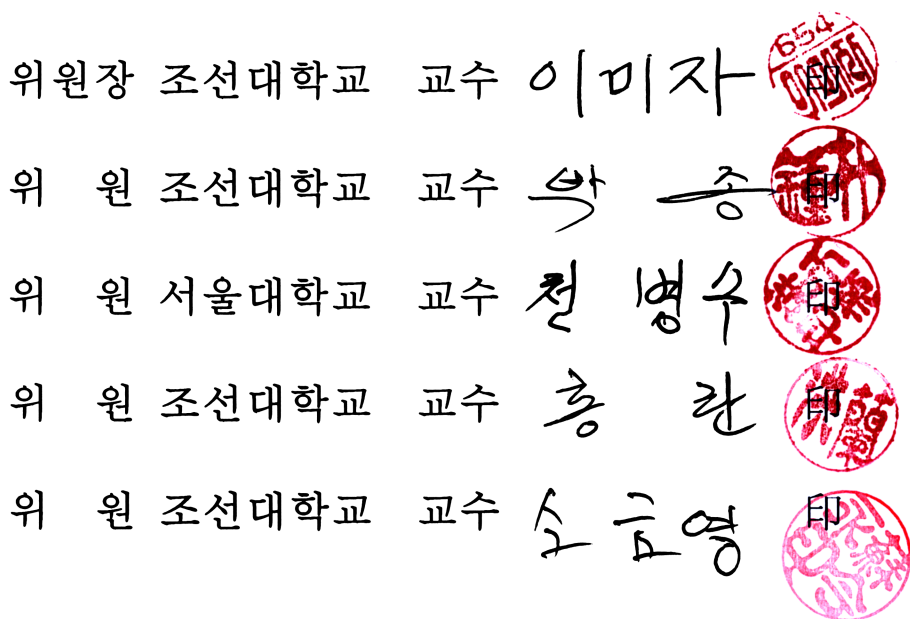 위원장 조선대학교 교수 이미자 印
위 원 조선대학교 교수 박 종 印
위 원 서울대학교 교수 천병수 印
위 원 조선대학교 교수 홍 란 印
위 원 조선대학교 교수 印